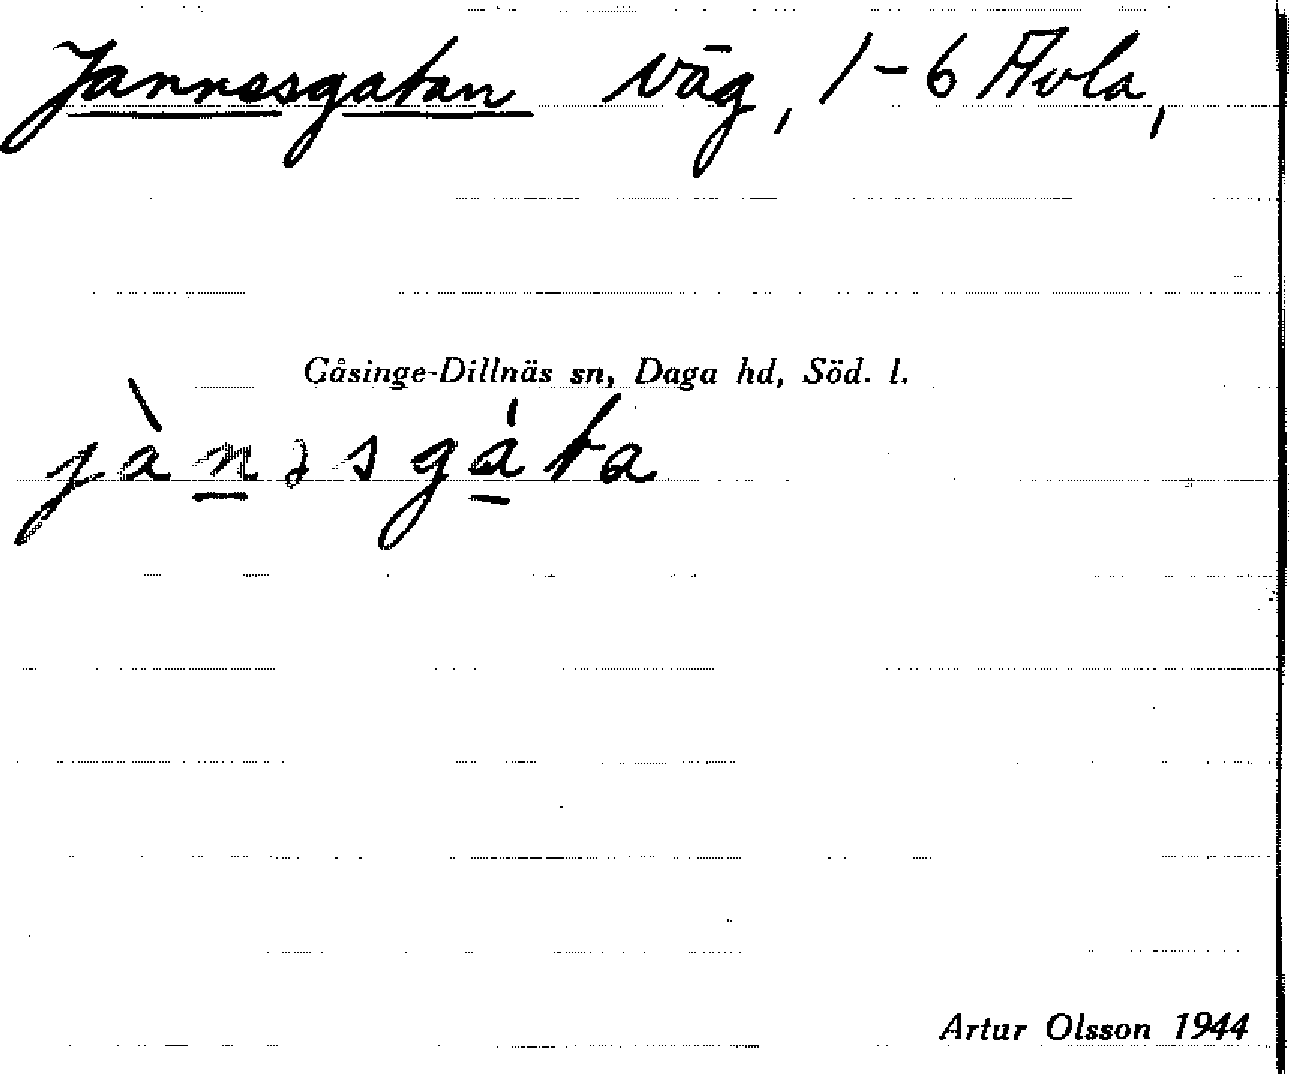 Jannesgatan väg, 1-6 Avla,
Gåsinge-Dillnäs sn, Daga hd, Söd. l.
jànəsgáta
Artur Olsson 1944